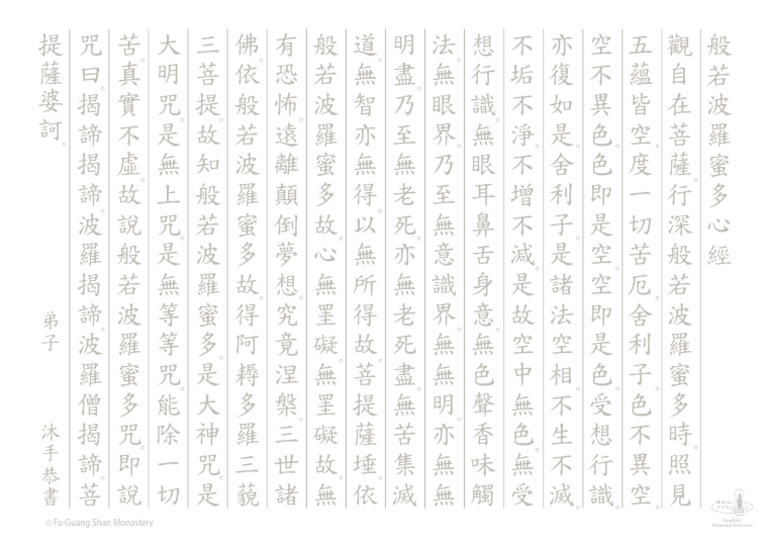 般若波羅蜜多心經
觀自在菩薩。行深般若波羅蜜多時。照見
五蘊皆空。度一切苦厄。舍利子。色不異空。
空不異色。色即是空。空即是色。受想行識。
亦復如是。舍利子。是諸法空相。不生不滅。
不垢不淨。不增不減。是故空中無色。無受
想行識。無眼耳鼻舌身意。無色聲香味觸
法。無眼界。乃至無意識界。無無明。亦無無
明盡。乃至無老死。亦無老死盡。無苦集滅
道。無智亦無得。以無所得故。菩提薩埵。依
般若波羅蜜多故。心無罣礙。無罣礙故。無
有恐怖。遠離顛倒夢想。究竟涅槃。三世諸
佛。依般若波羅蜜多故。得阿耨多羅三藐
三菩提。故知般若波羅蜜多。是大神咒。是
大明咒。是無上咒。是無等等咒。能除一切
苦。真實不虛。故說般若波羅蜜多咒。即說
咒曰。揭諦揭諦。波羅揭諦。波羅僧揭諦。菩
提薩婆訶。 弟子 沐手恭書
© Fo Guang Shan Monastery
English
Dharma Services